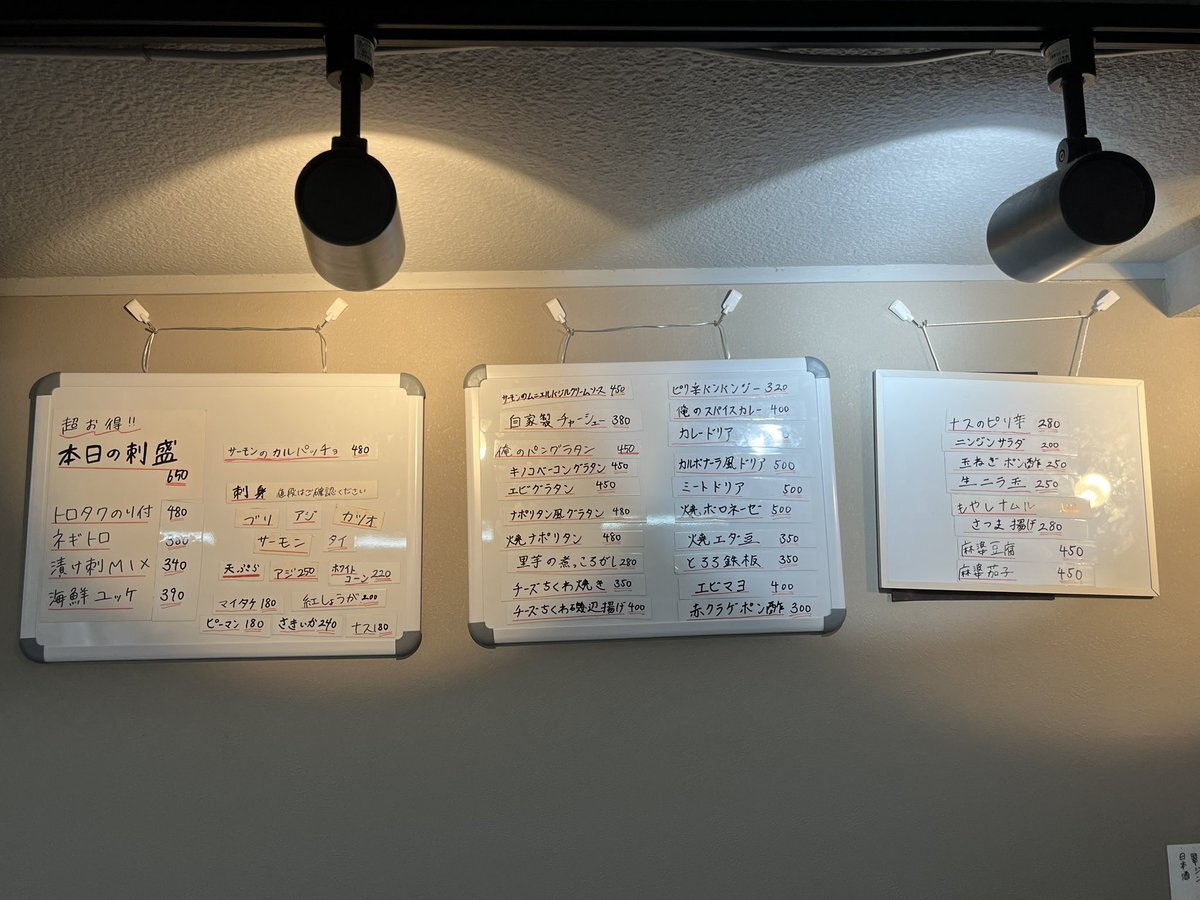 超お得!!
本日の刺盛
650
トロタクのり付 480
ネギトロ
漬け刺MIX 340
海鮮ユッケ 390
サーモンのカルパッチョ 480
刺身 値段はご確認ください
ブリ アジ カツオ
サーモン タイ
天ぷら アジ250 ホワイトコーン220
マイタケ180 紅しょうが200
ピーマン180 さきいか240 ナス180
サーモンのムニエルバジルクリームソース 450
自家製チャーシュー 380
俺のパングラタン 450
キノコベーコングラタン 450
エビグラタン 450
ナポリタン風グラタン 480
焼ナポリタン 480
里芋の煮っころがし280
チーズちくわ焼き 350
チーズちくわ磯辺揚げ400
ピリ辛バンバンジー 320
俺のスパイスカレー 400
カレードリア
カルボナーラ風ドリア 500
ミートドリア 500
焼ボロネーゼ 500
焼エダ豆 350
とろろ鉄板 350
エビマヨ 400
赤クラゲポン酢 300
ナスのピリ辛 280
ニンジンサラダ 200
玉ねぎポン酢 250
生ニラ玉 250
もやしナムル
さつま揚げ280
麻婆豆腐 450
麻婆茄子 450
日本酒